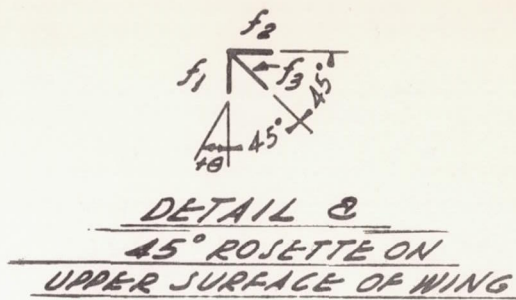 f2
f1
f3
45°
45°
+θ
DETAIL 2
45° ROSETTE ON
UPPER SURFACE OF WING